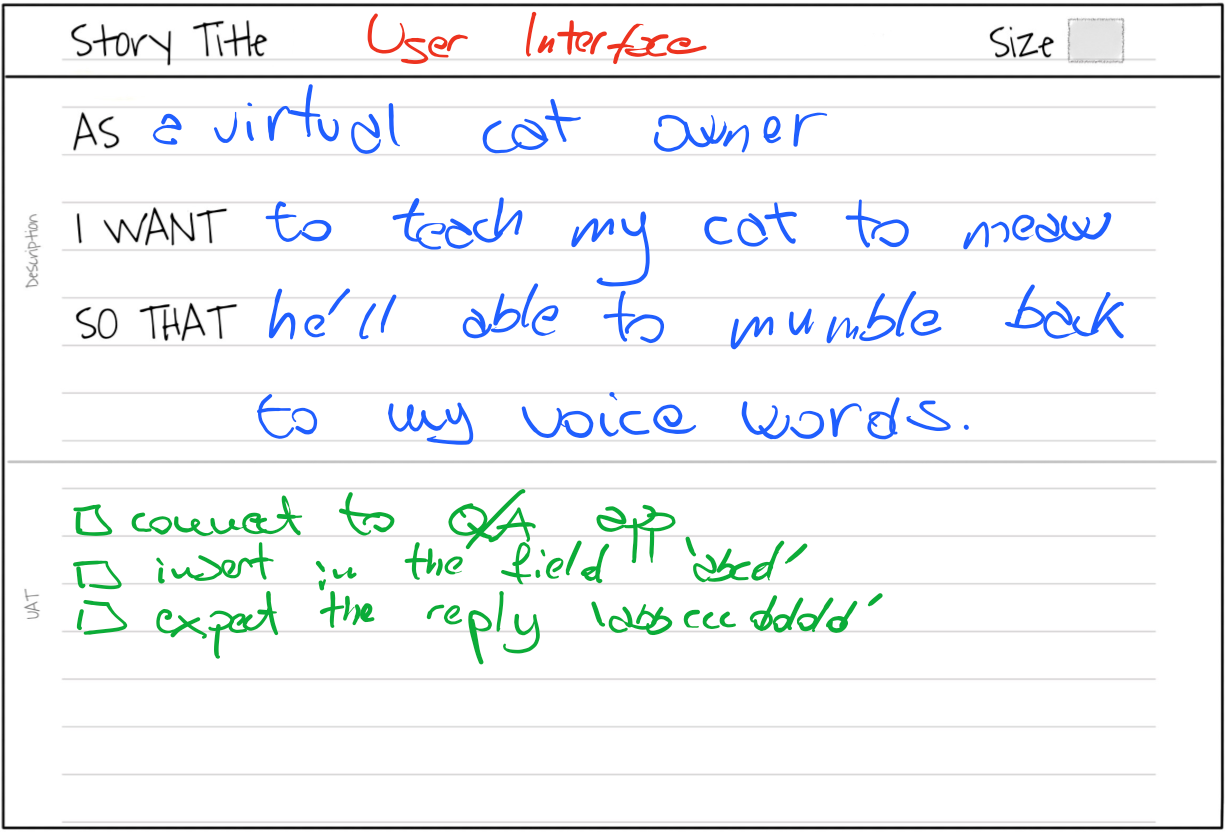 Story Title User Interface Size
AS a virtual cat owner
I WANT to teach my cat to meaw
SO THAT he'll able to mumble back
to my voice words.
Description
□ connect to Q/A app
□ insert in the field 'abcd'
□ expect the reply 'abbcccdddd'
UAT